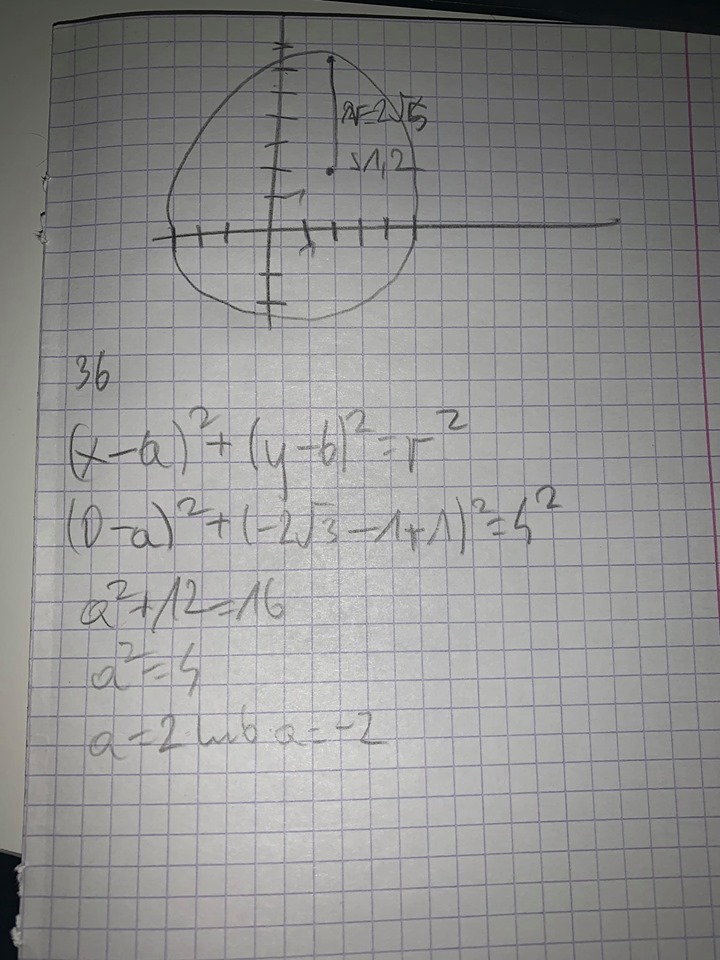 r=2√5
S1,2
1
1
36
(x-a)²+(y-b)²=r²
(0-a)²+(-2√3-1+1)²=4²
a²+12=16
a²=4
a=2 lub a=-2